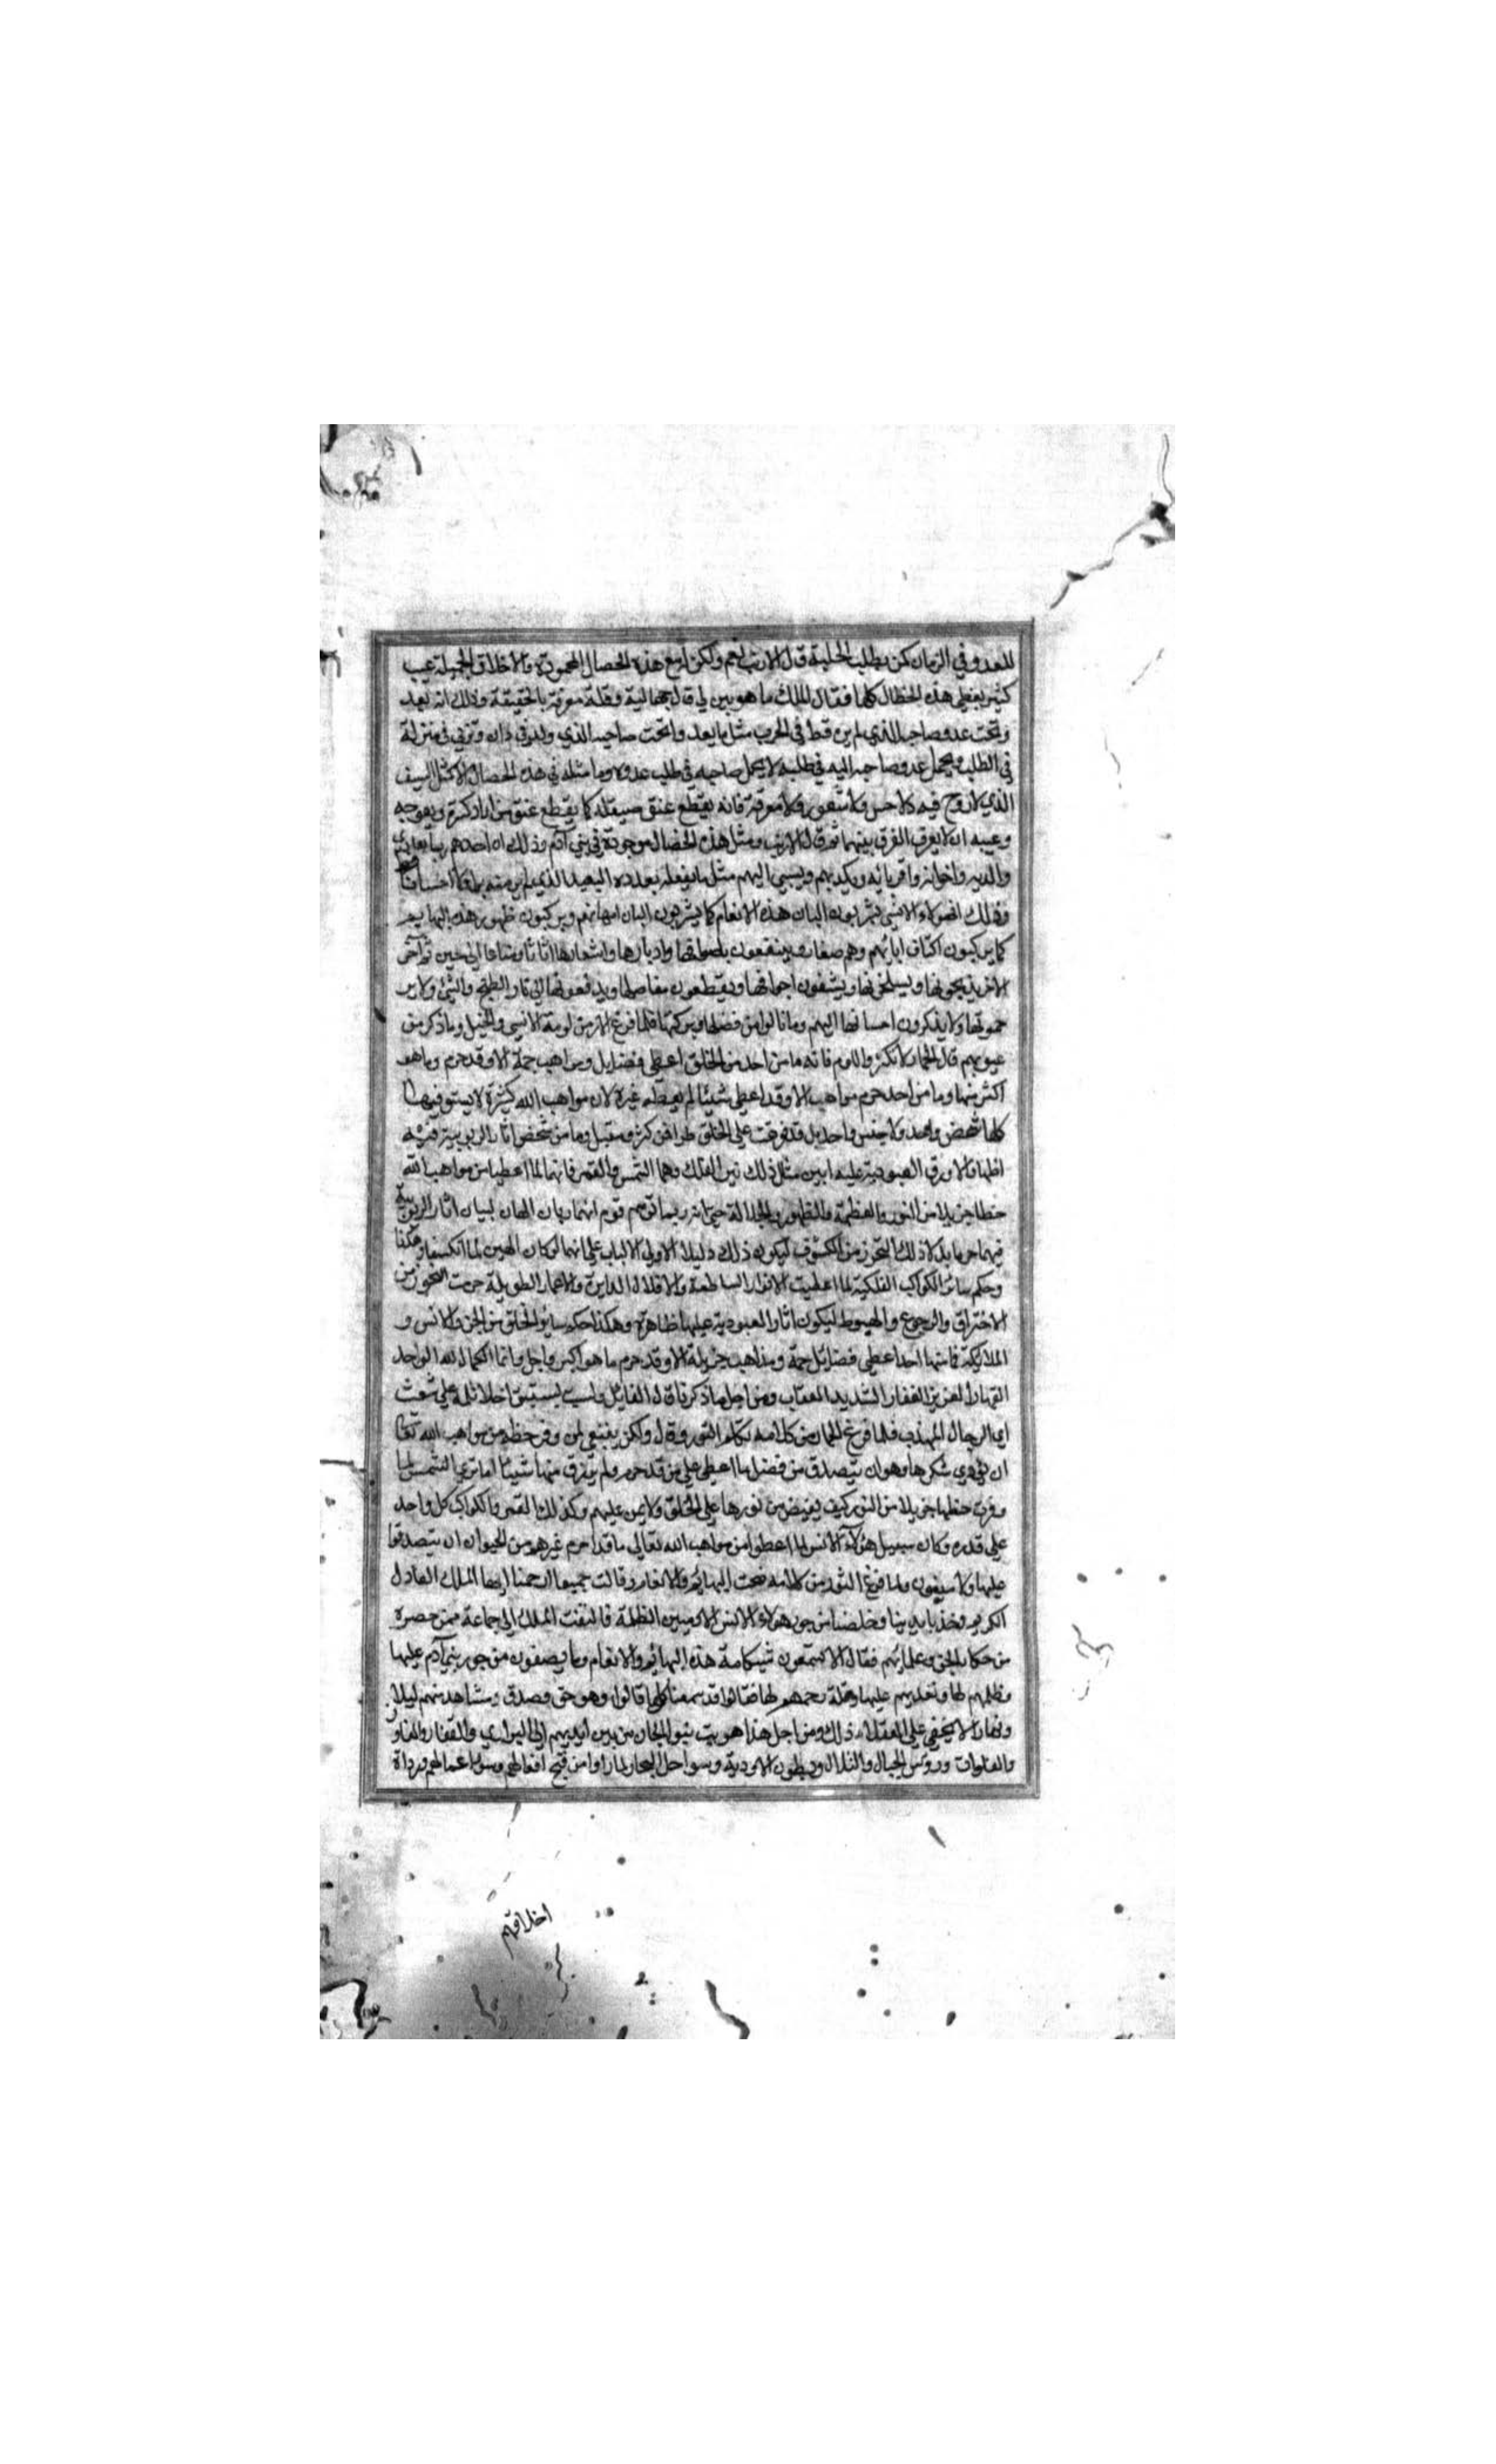 للعدو وفي الزمان كمن يطلب الحلبة قال الارنب نعم ولكن له مع هذه الخصال المحمودة والاخلاق الجميلة عيب
كثير يغطي هذه الخصال كلها فقال الملك ما هو بين لي قال جهالية وقلة معرفة بالحقيقة وذلك انه يعد
وتحت عدو صاحبه الذي لم يره قط في الحرب مثل ما يعد وتحت صاحبه الذي ولد في داره وتربى في منزله
في الطلب ويحمل عدو صاحبه اليه في طلبه كما يحمل صاحبه في طلب عدوه وما مثله في هذه الخصال الا كمثل السيف
الذي لا روح فيه ولا حس ولا شعور ولا معرفة فانه يقطع عنق صيقله كما يقطع عنق من اراد كسره وتعويجه
وعيبه انه لا يعرف الفرق بينهما ثم قال الارنب ومثل هذه الخصال موجودة في بني آدم وذلك ان احدهم ربما يعادي
والديه واخوانه واقربائه ويكيدهم ويسيئ اليهم مثل ما يفعله بعدوه البعيد الذي لم ير منه برا ولا احسانا قط
وذلك ان هؤلاء الانس يشربون البان هذه الانعام كما يشربون البان امهاتهم ويركبون ظهور هذه البهايم
كما يركبون اكتاف ابائهم وهم صغار وينتفعون باصوافها واوبارها واشعارها اثاثا ومتاعا الى حين ثم آخر
الامر يذبحونها ويسلخونها ويشقون اجوافها ويقطعون مفاصلها ويذقعونها الى نار الطبخ والشي ولا ير
حمونها ولا يذكرون احسانها اليهم وما نالوا من فضلها وبركتها فلما فرغ الارنب من لومة الانسي والخيل وما ذكر من
عيوبهم قال الحمار لا تكثر واللوم فانه ما من احد من الخلق اعطي فضايل ومواهب جمة الا وقد حرم وما هو
اكثر منها وما من احد حرم مواهب الا وقد اعطي شيئا لم يعطه غيره لان مواهب الله كثيرة لا يستوفيها
كلها شخص واحد ولا جنس واحد بل قد فرقت على الخلق طرا فمن كثر ومقبل وما من شخص اثار الربوبية فيه
اظهر الا ورق العبودية عليه ابين مثل ذلك نيري الفلك وهما الشمس والقمر فانهما لما اعطيا من مواهب الله
حظا جزيلا من النور والعظمة والظهور والجلالة حتى انه ربما توهم قوم انهما ربان الهان لبيان اثار الربوبية
فيهما حرما بدل ذلك التحرز من الكسوف ليكون ذلك دليلا لاولي الالباب على انهما لو كان الهين لما انكسفا وهكذا
وحكم سائر الكواكب الفلكية لما اعطيت الانوار الساطعة والافلاك الدايرة والاعمار الطويلة حرمت التحرز من
الاحتراق والرجوع والهبوط ليكون اثار العبودية عليها ظاهرة وهكذا حكم سائر الخلق من الجن والانس و
الملائكة فما منها احد اعطي فضائل جمة ومواهب جزيلة الا وقد حرم ما هو اكبر واجل وانما الكمال لله الواحد
القهار العزيز الغفار الشديد العقاب ومن اجل ما ذكرنا قال القائل ولست بمستبق اخا لا تلمه على شعث
اي الرجال المهذب فلما فرغ الحمار من كلامه تكلم الثور وقال ولكن ينبغي لمن وفر حظه من مواهب الله تعالى
ان يؤدي شكرها وهو ان يتصدق من فضل ما اعطي على من قد حرم ولم يرزق منها شيئا اما ترى الشمس لما
وفرت حظها جزيلا من النور كيف يفيض من نورها على الخلق ولا يمن عليهم وكذلك القمر والكواكب كل واحد
على قدره وكان سبيل هؤلاء الانس لما اعطوا من مواهب الله تعالى ما قد حرم غيرهم من الحيوان ان يتصدقوا
عليها ولا ... ولما فرغ الثور من كلامه ضجت البهائم والانعام وقالت جميعا ارحمنا ايها الملك العادل
الكريم وخذ بايدينا وخلصنا من جور هؤلاء الانس الادميين الظلمة فالتفت الملك الى جماعة ممن حضره
من حكماء الجن وعلمائهم فقال الا تسمعون شيكامة هذه البهائم والانعام وما يصفون من جور بني آدم عليها
وظلمهم لها وتعديهم عليها وقلة رحمهم لها فقالوا قد سمعنا كلها قالوا وهو حق وصدق ومشاهد منهم ليلا
ونهارا لا يخفى على العقلاء ذلك ومن اجل هذا هربت بنو الجان من بين ايديهم الى البراري والقفار والمفاوز
والفلوات ورؤس الجبال والتلال وبطون الاودية وسواحل البحار لما راوا من قبح افعالهم وسوء اعمالهم ورداة
اخلاقهم